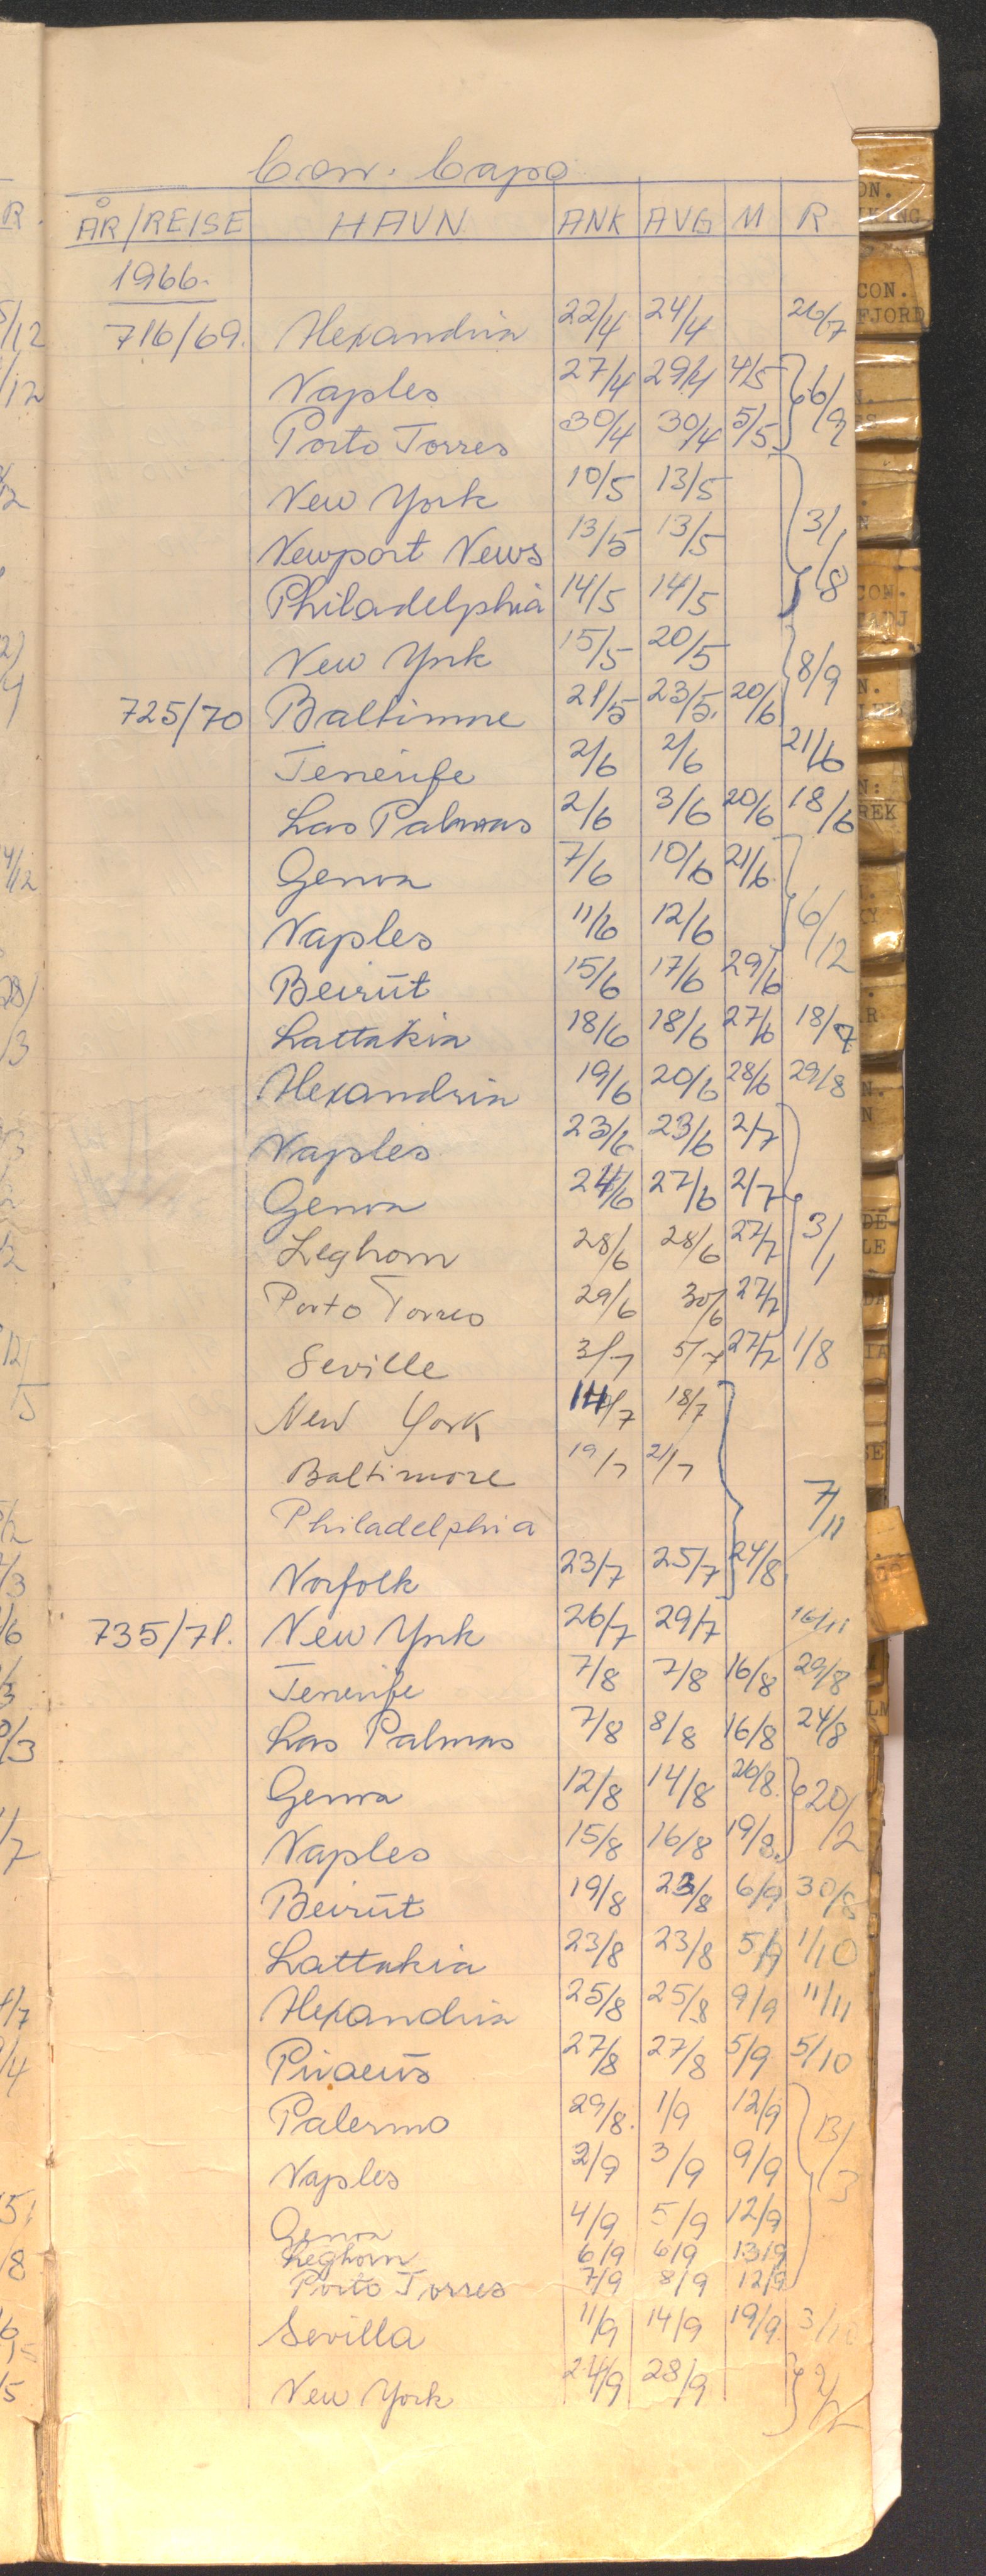 Con. Capo
ÅR/REISE HAVN ANK AVG M R
1966.
716/69. Alexandria 22/4 24/4 26/7
Naples 27/4 29/4 4/5 6/9
Porto Torres 30/4 30/4 5/5
New York 10/5 13/5
Newport News 13/5 13/5 3/8
Philadelphia 14/5 14/5
New York 15/5 20/5 8/9
725/70 Baltimore 21/5 23/5. 20/6
Tenerife 2/6 2/6 21/6
Las Palmas 2/6 3/6 20/6 18/6
Genoa 7/6 10/6 21/6
Naples 11/6 12/6 6/12
Beirut 15/6 17/6 29/6
Lattakia 18/6 18/6 27/6 18/7
Alexandria 19/6 20/6 28/6 29/8
Naples 23/6 23/6 2/7
Genoa 24/6 27/6 2/7
Leghorn 28/6 28/6 27/7 3/1
Porto Torres 29/6 30/6 27/7
Seville 3/7 5/7 27/7 1/8
New York 14/7 18/7
Baltimore 19/7 21/7
Philadelphia 7/11
Norfolk 23/7 25/7 24/8
735/71. New York 26/7 29/7 16/11
Tenerife 7/8 7/8 16/8 29/8
Las Palmas 7/8 8/8 16/8 24/8
Genoa 12/8 14/8 26/8. 20/2
Naples 15/8 16/8 19/8.
Beirut 19/8 23/8 6/9 30/8
Lattakia 23/8 23/8 5/9 1/10
Alexandria 25/8 25/8 9/9 11/11
Piraeus 27/8 27/8 5/9 5/10
Palermo 29/8. 1/9 12/9 13/3
Naples 2/9 3/9 9/9
Genoa 4/9 5/9 12/9
Leghorn 6/9 6/9 13/9
Porto Torres 7/9 8/9 12/9
Sevilla 11/9 14/9 19/9 3/10
New York 24/9 28/9